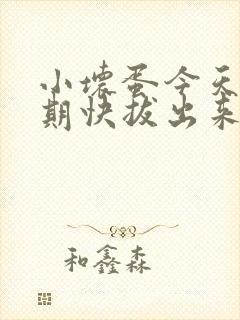 小壊蛋今天
期快拔出来
和鑫森